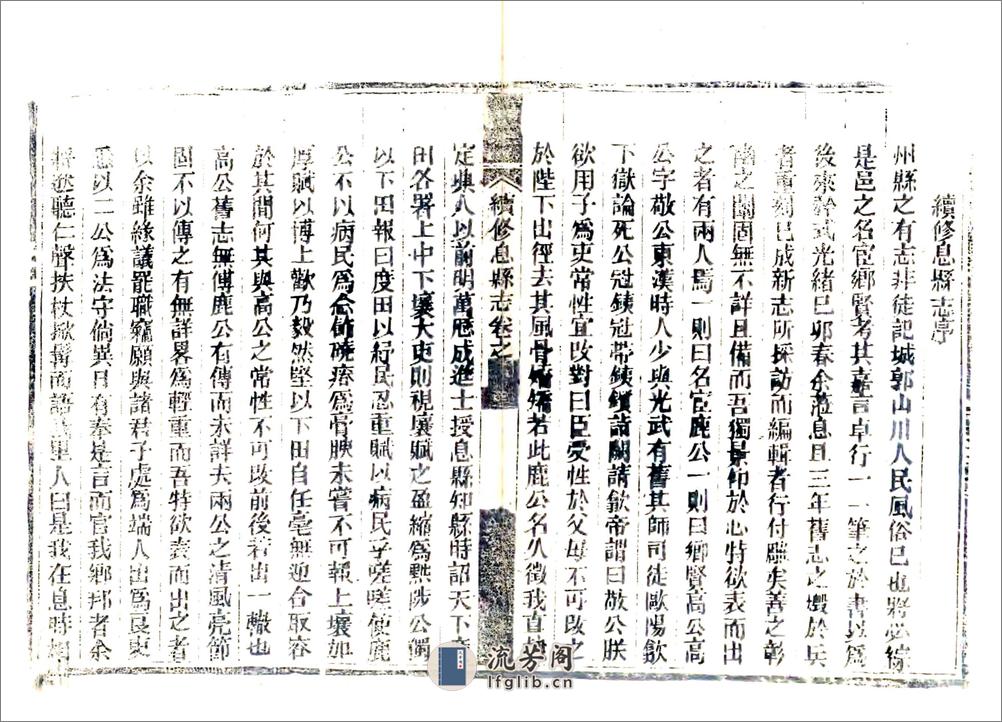 續修息縣志序
州縣之有志非徒記城郭山川人民風俗已也將必綜
是邑之名宦鄉賢考其嘉言卓行一一筆之於書以爲
後來幹式光緒已卯春余蒞息且三年舊志之燬於兵
者重刻已成新志所採訪而編輯者行付雕矣善之彰
幽之闡固無不詳且備而吾獨景仰於心特欲表而出
之者有兩人焉一則曰名宦鹿公一則曰鄉賢高公高
公字敬公東漢時人少與光武有舊其師司徒歐陽歙
下獄論死公冠鐵冠帶鐵鑕請闕請歙帝謂曰敬公朕
欲用子爲吏常性宜改對曰臣受性於父母不可改之
於陛下出徑去其風骨矯矯若此鹿公名久徵我直
續修息縣志卷之
定興人以前明萬歷成進士授息縣知縣時詔天下
田各署上中下壤大吏則視壤賦之盈縮爲黜陟公獨
以下田報曰度田以紓民忍重賦以病民乎嗟嗟使鹿
公不以病民爲念飾磽瘠爲膏腴未嘗不可報上壤加
厚賦以博上歡乃毅然堅以下田自任毫無迎合取容
於其間何其與高公之常性不可改前後若出一轍也
高公舊志無傳鹿公有傳而未詳夫兩公之清風亮節
固不以傳之有無詳畧爲輕重而吾特欲表而出之者
以余雖緣議罷職竊願與諸君子處爲端人出爲良吏
懸以二公爲法守倘異日有奉是言而宦我鄉邦者余
將逖聽仁聲扶杖掀髯而語里人曰是我在息時
流芳阁
lfglib.cn